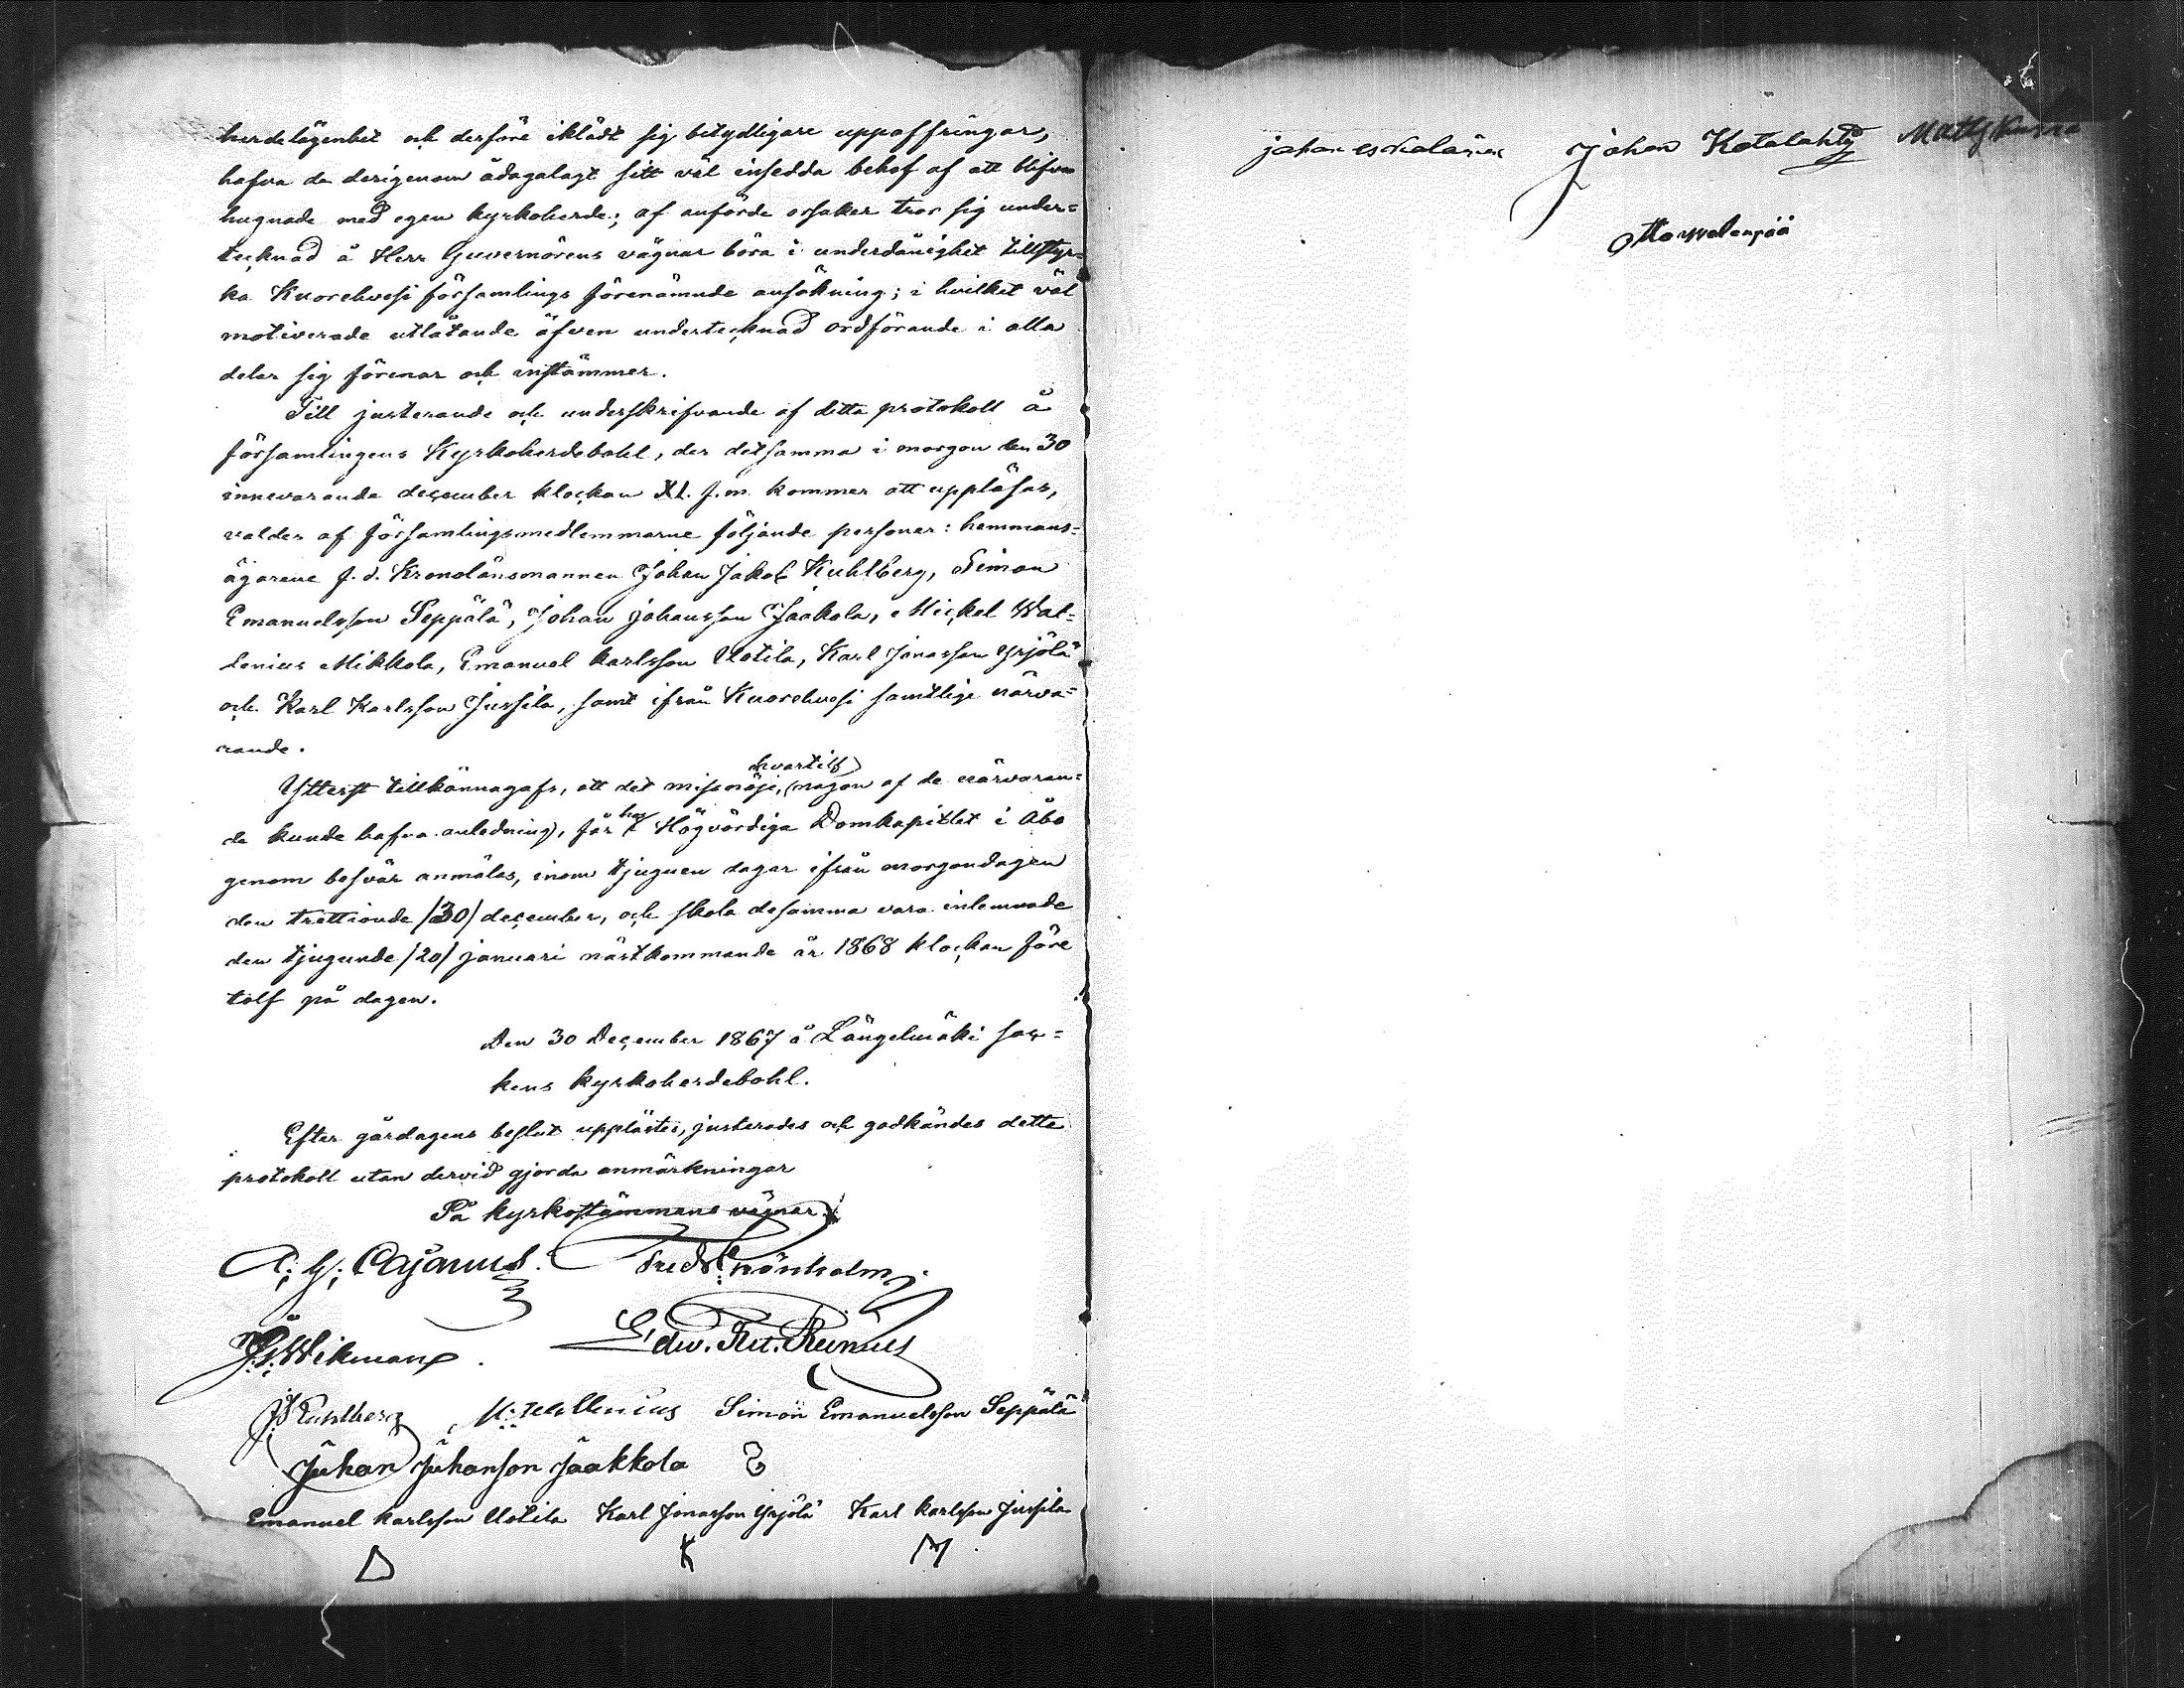 herdelägenhet och derföre iklädt sig betydligare uppoffringar,
hafva de derigenom ådagalagt sitt väl insedda behof af att blifva
hugnade med egen kyrkoherde; af anförde orsaker tror sig under=
tecknad å Herr Guvernörens vägnar böra i underdånighet tillstyr=
ka Kuorehvesi församlings förenämnde ansökning; i hvilket väl
motiverade utlåtande äfven undertecknad ordförande i alla
delar sig förenar och instämmer.
Till justerande och underskrifvande af detta protokoll å
församlingens Kyrkoherdebohl, der detsamma i morgon den 30
innevarande december klockan XI. f.m. kommer att uppläsas,
valdes af församlingsmedlemmarne följande personer: hemmans=
ägarene f. d. Kronolänsmannen Johan Jakob Kuhlberg, Simon
Emanuelsson Seppälä, Johan Johansson Jaakola, Mickel Wal=
lenius Mikkola, Emanuel Karlsson Uotila, Karl Jonasson Yrjölä
och Karl Karlsson Jussila, samt ifrån Kuorehvesi samtlige närva=
rande.
Ytterst tillkännagafs, att det missnöje, hvartill någon af de närvaran=
de kunde hafva anledning, får hos Högvördiga Domkapitlet i Åbo
genom besvär anmälas, inom tjuguen dagar ifrån morgondagen
den trettionde /30/ december, och skola desamma vara inlemnade
den tjugunde /20/ januari nästkommande år 1868 klockan före
tolf på dagen.
Den 30 December 1867 å Längelmäki soc=
kens kyrkoherdebohl.
Efter gårdagens beslut upplästes, justerades och godkändes detta
protokoll utan dervid gjorda anmärkningar
På kyrkostämmans vägnar
A: G: Cajanus. Fred Grönholm
J. G. Wikman. Edw. Rut. Renius
J J Kuhlberg M: Wallenius Simon Emanuelsson Seppälä
Juhan Juhanson Jaakkola
Emanuel Karlsson Uotila Karl Jonasson Yrjölä Karl Karlsson Jussila
K M
Johan Kotalahty Matts